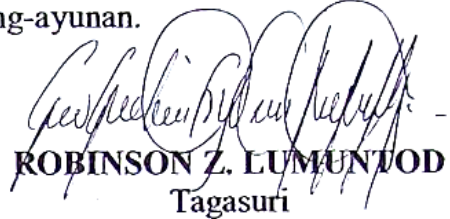 ng-ayunan.
ROBINSON Z. LUMUNTOD
Tagasuri